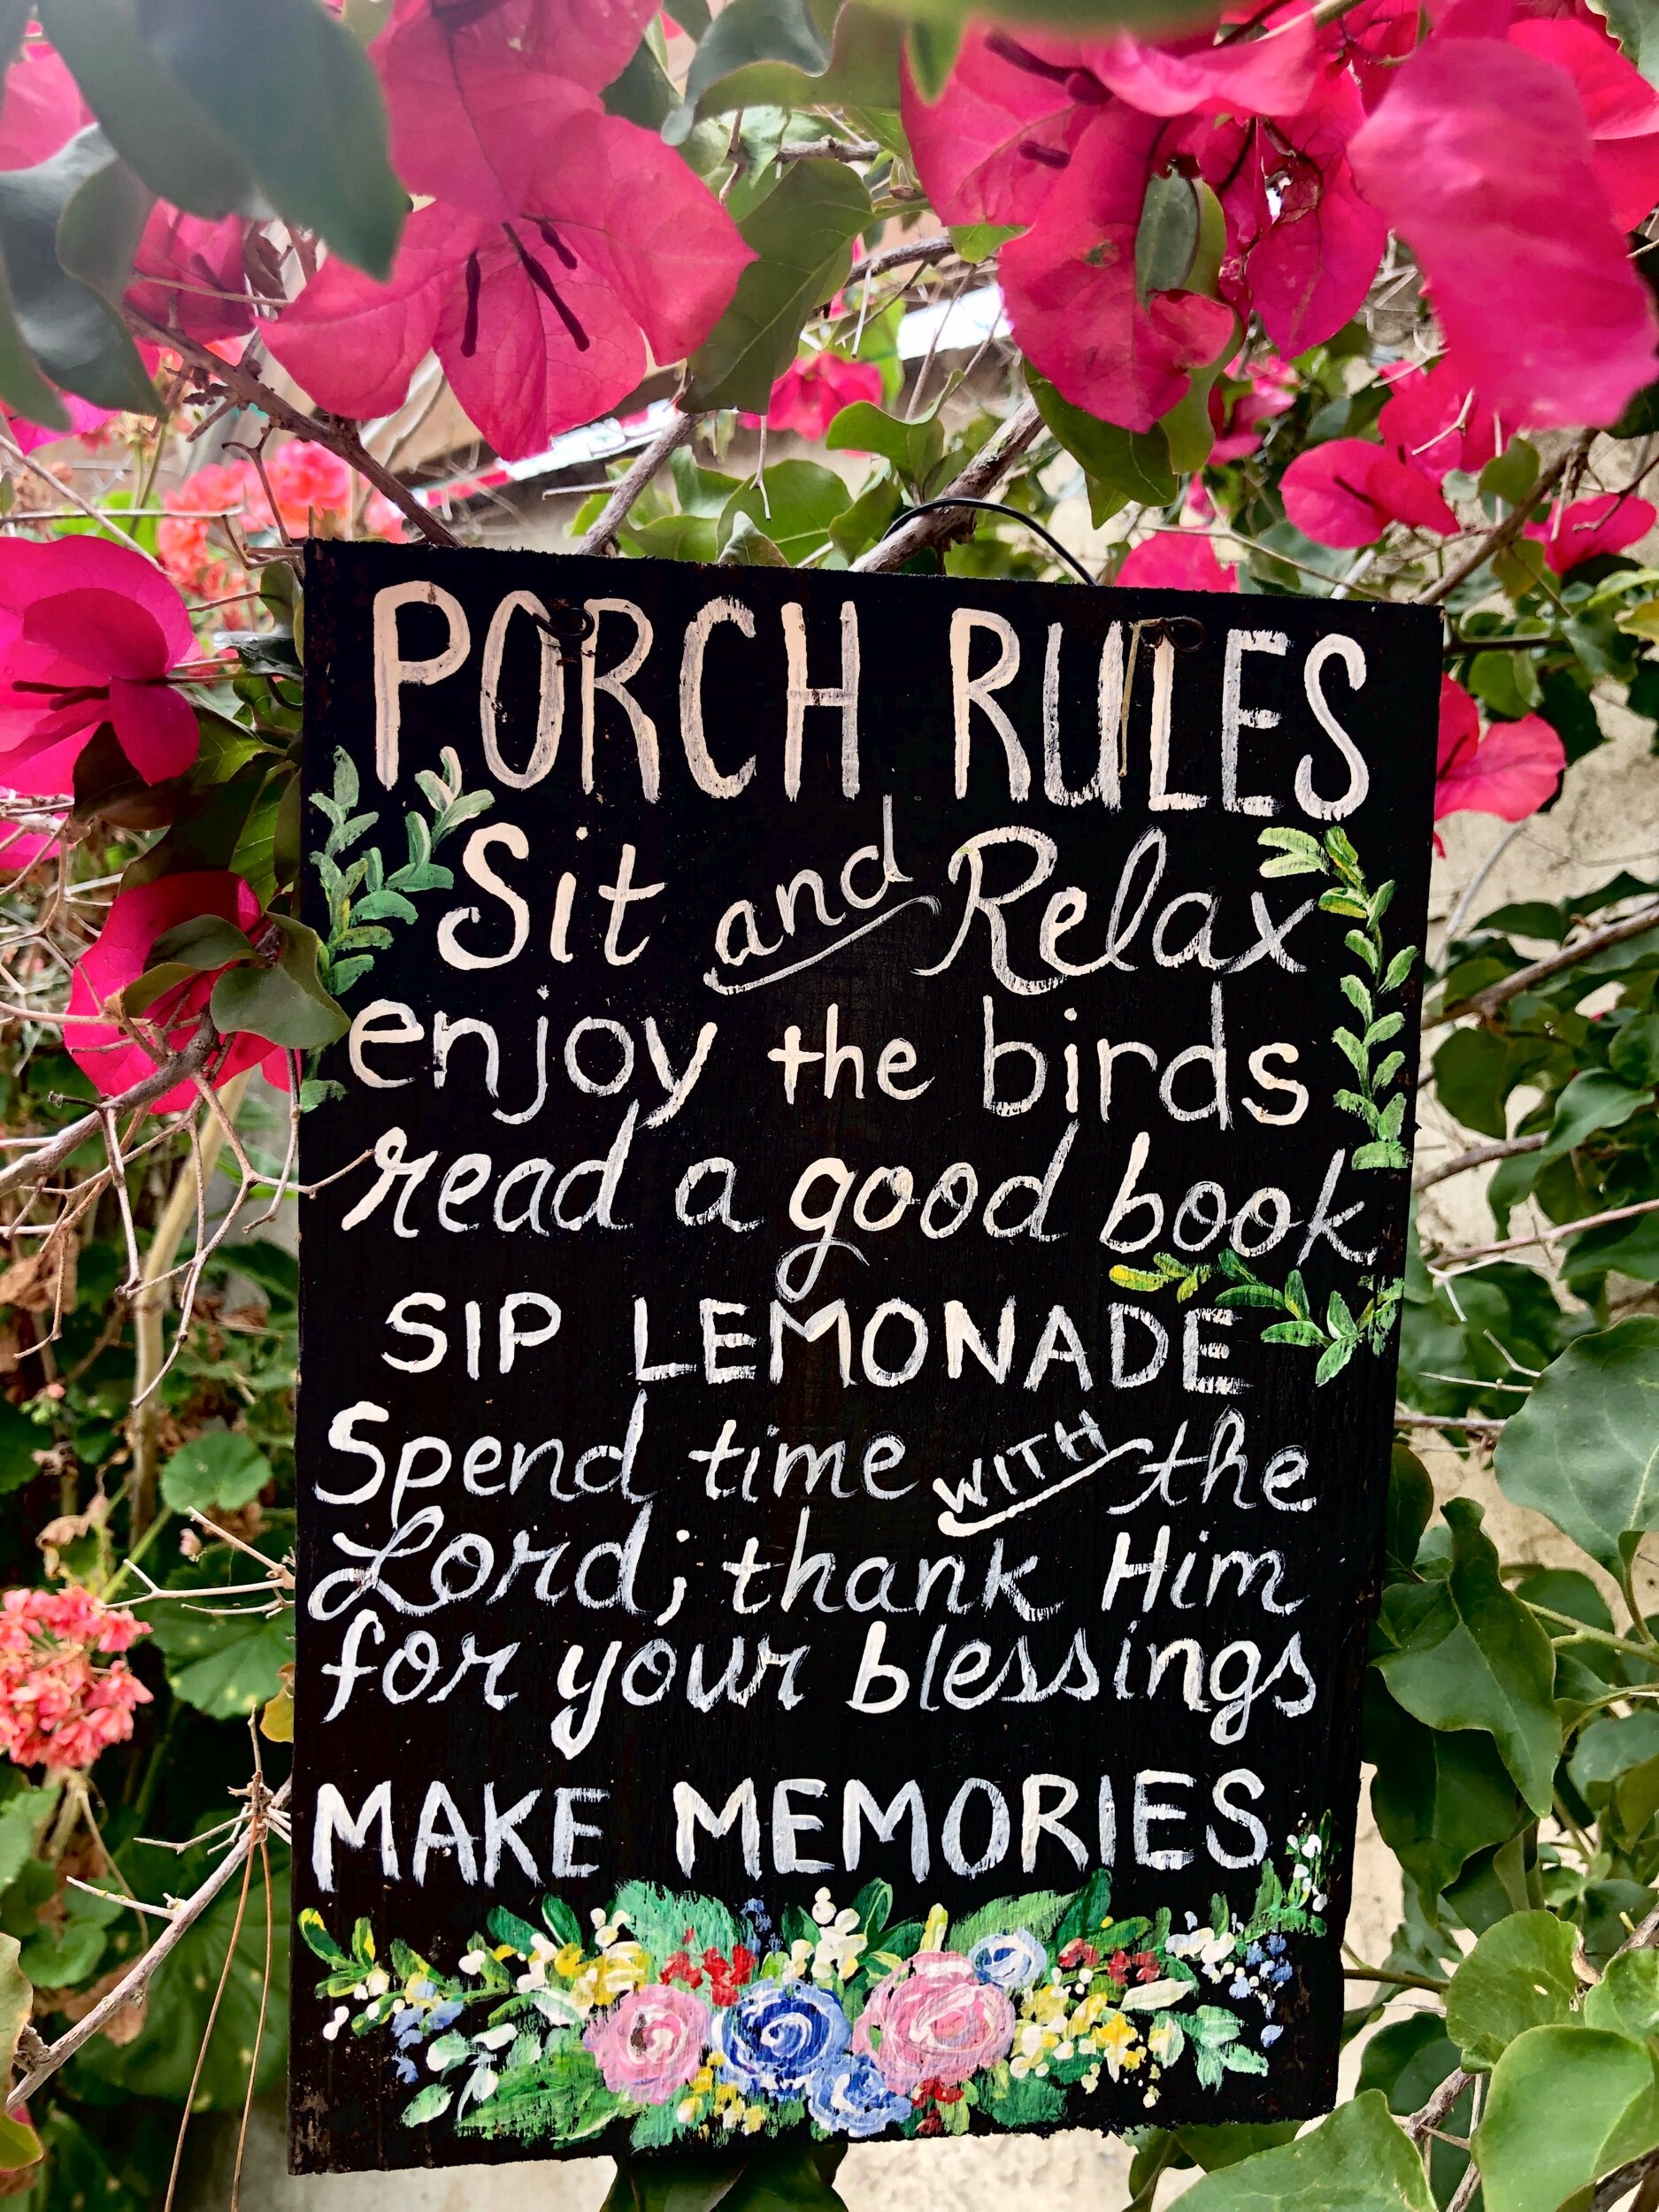 PORCH RULES
Sit and Relax
enjoy the birds
read a good book
SIP LEMONADE
Spend time WITH the
Lord; thank Him
for your blessings
MAKE MEMORIES